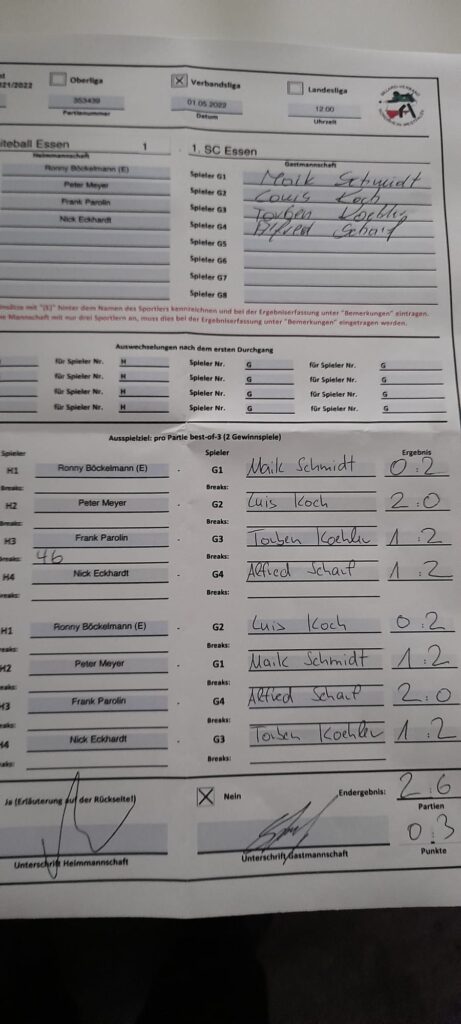 021/2022 Oberliga Verbandsliga Landesliga
353439 01.05.2022 12:00
Partienummer Datum Uhrzeit
iteball Essen 1 1. SC Essen
Heimmannschaft Gastmannschaft
Ronny Böckelmann (E) Spieler G1 Maik Schmidt
Peter Meyer Spieler G2 Louis Koch
Frank Parolin Spieler G3 Torben Koehler
Nick Eckhardt Spieler G4 Alfred Scharf
Spieler G5
Spieler G6
Spieler G7
Spieler G8
insätze mit "(E)" hinter dem Namen des Sportlers kennzeichnen und bei der Ergebniserfassung unter "Bemerkungen" eintragen.
ne Mannschaft mit nur drei Sportlern an, muss dies bei der Ergebniserfassung unter "Bemerkungen" eingetragen werden.
Auswechselungen nach dem ersten Durchgang
für Spieler Nr. H Spieler Nr. G für Spieler Nr. G
für Spieler Nr. H Spieler Nr. G für Spieler Nr. G
für Spieler Nr. H Spieler Nr. G für Spieler Nr. G
für Spieler Nr. H Spieler Nr. G für Spieler Nr. G
Ausspielziel: pro Partie best-of-3 (2 Gewinnspiele)
Spieler Spieler Ergebnis
H1 Ronny Böckelmann (E) - G1 Maik Schmidt 0:2
Breaks: Breaks:
H2 Peter Meyer - G2 Luis Koch 2:0
Breaks: Breaks:
H3 Frank Parolin - G3 Torben Koehler 1:2
Breaks: 46 Breaks:
H4 Nick Eckhardt - G4 Alfred Scharf 1:2
Breaks: Breaks:
H1 Ronny Böckelmann (E) - G2 Luis Koch 0:2
Breaks: Breaks:
H2 Peter Meyer - G1 Maik Schmidt 1:2
eaks: Breaks:
H3 Frank Parolin - G4 Alfred Scharf 2:0
eaks: Breaks:
H4 Nick Eckhardt - G3 Torben Koehler 1:2
aks: Breaks:
Ja (Erläuterung auf der Rückseite!) Nein Endergebnis: 2:6
Partien
0:3
Unterschrift Heimmannschaft Unterschrift Gastmannschaft Punkte